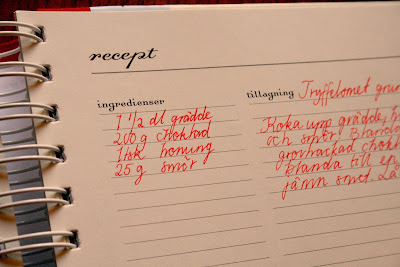 recept
ingredienser
1 1/2 dl grädde
200 g choklad
1 tsk honung
25 g smör
tillagning
Koka upp grädde, h
och smör. Blanda
grovhackad chokl
blanda till en
jämn smet. Lå